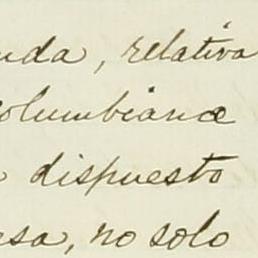 uda, relativa
Columbiana
dispuesto
esa, no solo